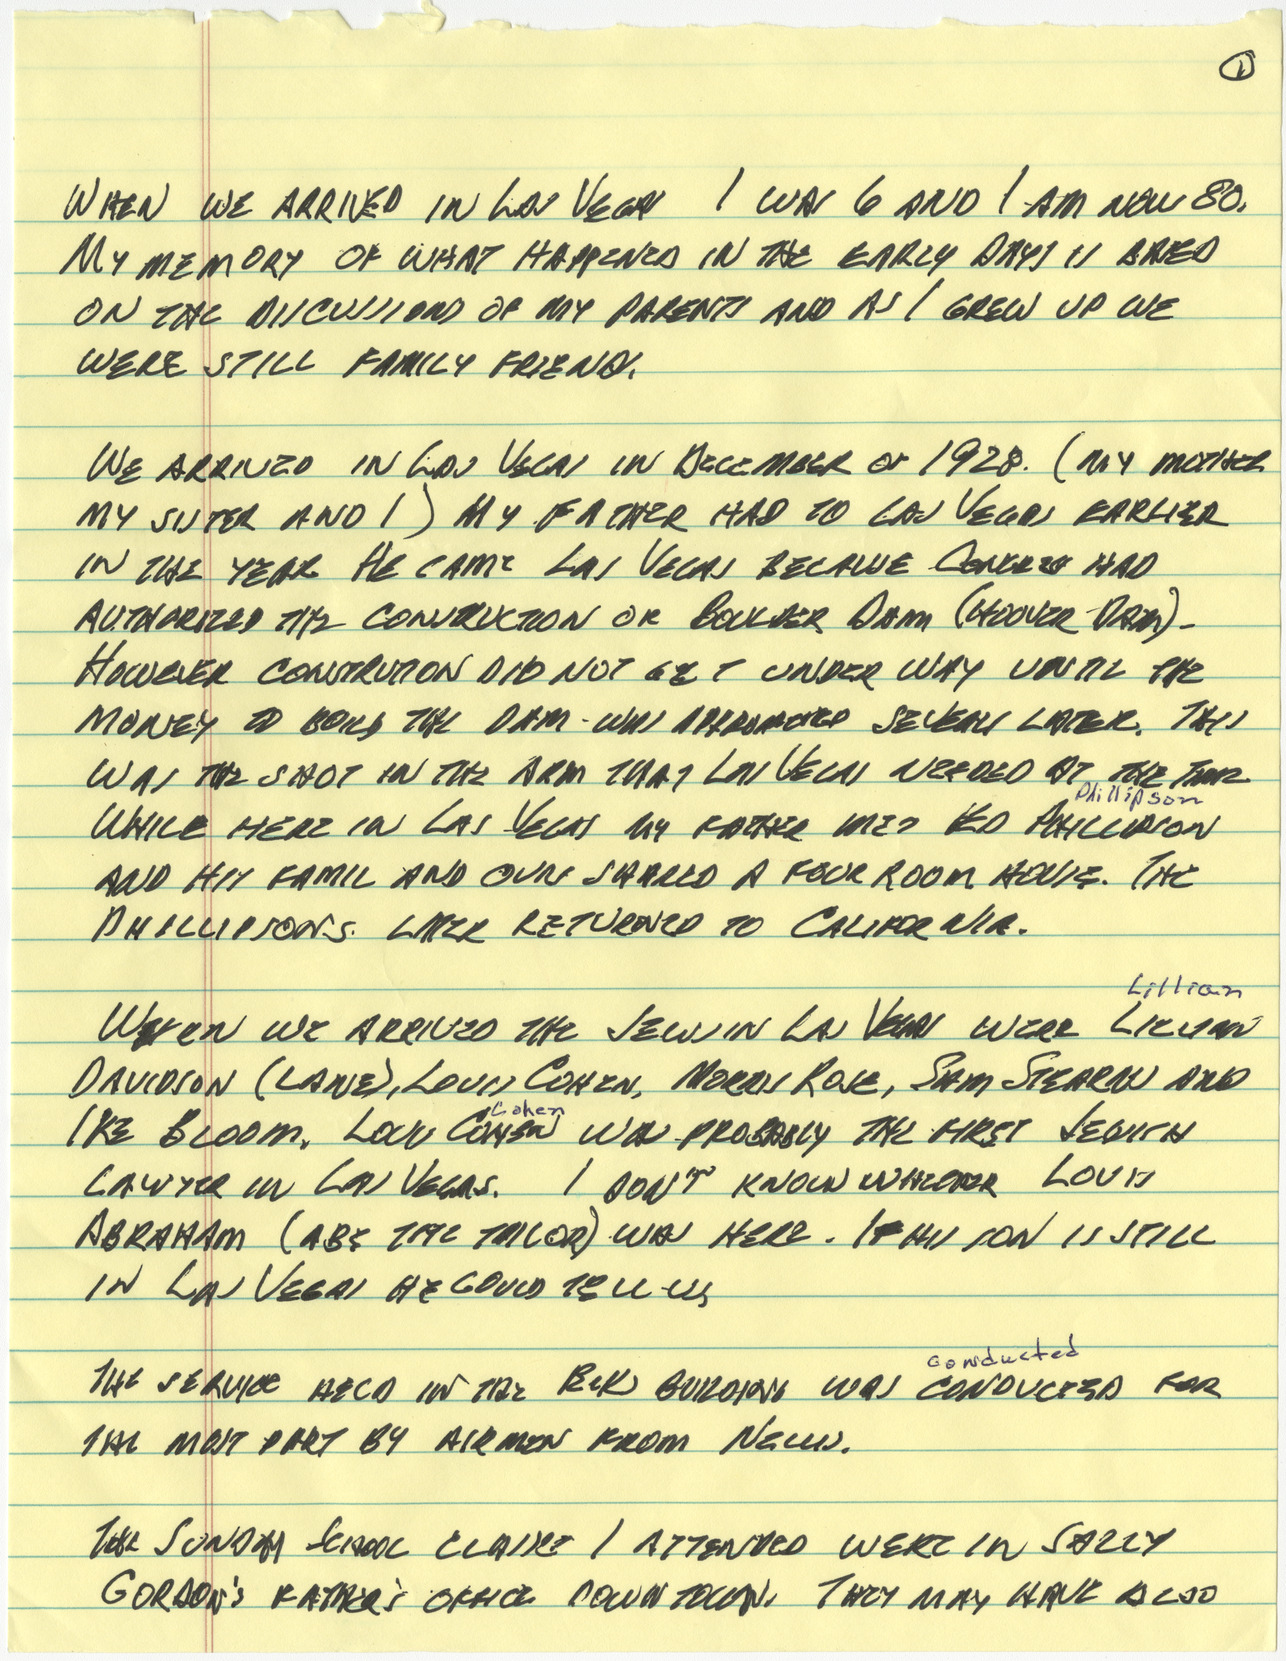 1
WHEN WE ARRIVED IN LAS VEGAS I WAS 6 AND I AM NOW 80.
MY MEMORY OF WHAT HAPPENED IN THE EARLY DAYS IS BASED
ON THE DISCUSSIONS OF MY PARENTS AND AS I GREW UP WE
WERE STILL FAMILY FRIENDS.
WE ARRIVED IN LAS VEGAS IN DECEMBER OF 1928. (MY MOTHER
MY SISTER AND I) MY FATHER HAD TO LAS VEGAS EARLIER
IN THE YEAR HE CAME LAS VEGAS BECAUSE CONGRESS HAD
AUTHORIZED THE CONSTRUCTION OF BOULDER DAM (HOOVER DAM)-
HOWEVER CONSTRUTION DID NOT GET UNDER WAY UNTIL THE
MONEY TO BUILD THE DAM WAS LATER. THIS
WAS THE SHOT IN THE ARM THAT LAS VEGAS NEEDED AT THE TIME
Phillipson
WHILE HERE IN LAS VEGAS MY FATHER MET ED PHILLIPSON
AND HIS FAMIL AND OURS SHARED A FOUR ROOM HOUSE. THE
PHILLIPSONS. LATER RETURNED TO CALIFORNIA.
Lillian
WHEN WE ARRIVED THE JEWS IN LAS VEGAS WERE LILLIAN
DAVIDSON (LANE), LOUIS COHEN, MORRIS ROSE, SAM STEARNS AND
Cohen
IKE BLOOM. LOUIS COHEN WAS PROBABLY THE FIRST JEWISH
LAWYER IN LAS VEGAS. I DON'T KNOW WHETHER LOUIS
ABRAHAM (ABE THE TAILOR) WAS HERE. IF HIS SON IS STILL
IN LAS VEGAS HE COULD TELL US.
conducted
THE SERVICE HELD IN THE ELKS BUILDING WAS CONDUCTED FOR
THE MOST PART BY AIRMEN FROM NELLIS.
THE SUNDAY SCHOOL CLASSES I ATTENDED WERE IN SALLY
GORDON'S FATHER'S OFFICE DOWNTOWN. THEY MAY HAVE ALSO